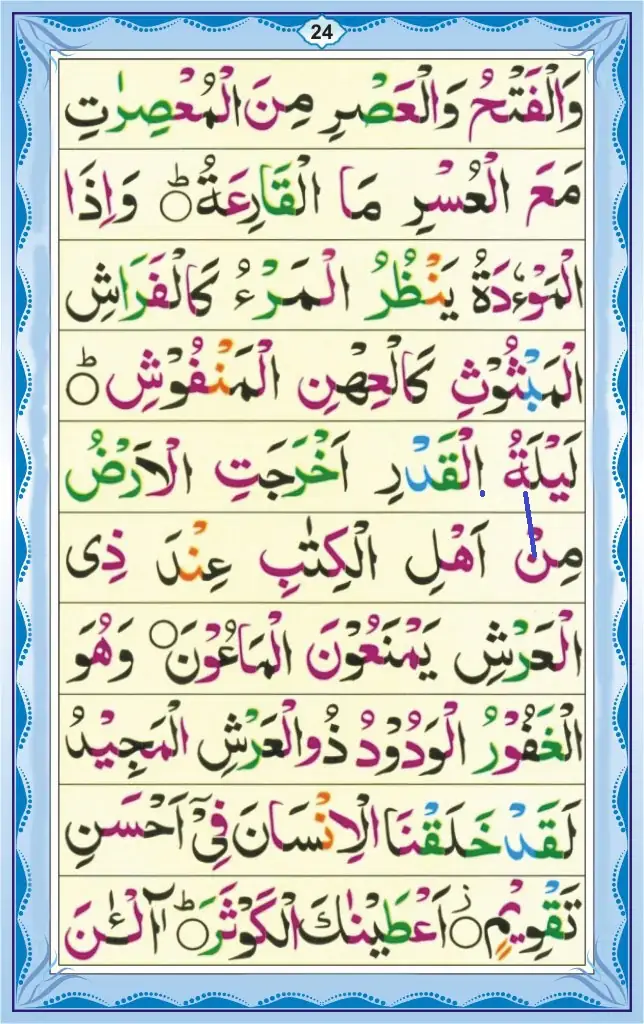 24
وَالْفَتْحُ وَالْعَصْرِ مِنَ الْمُعْصِرٰتِ
مَعَ الْعُسْرِ مَا الْقَارِعَةُ ؕ وَاِذَا
الْمَوْءٗدَةُ يَنْظُرُ الْمَرْءُ كَالْفَرَاشِ
الْمَبْثُوْثِ كَالْعِهْنِ الْمَنْفُوْشِ ؕ
لَيْلَةُ الْقَدْرِ اَخْرَجَتِ الْاَرْضُ
مِنْ اَهْلِ الْكِتٰبِ عِنْدَ ذِى
الْعَرْشِ يَمْنَعُوْنَ الْمَاعُوْنَ ۝ وَهُوَ
الْغَفُوْرُ الْوَدُوْدُ ذُوالْعَرْشِ الْمَجِيْدُ
لَقَدْ خَلَقْنَا الْاِنْسَانَ فِىْٓ اَحْسَنِ
تَقْوِيْمٍ ؗ اَعْطَيْنٰكَ الْكَوْثَرَ ؕ آلْـٰٔنَ